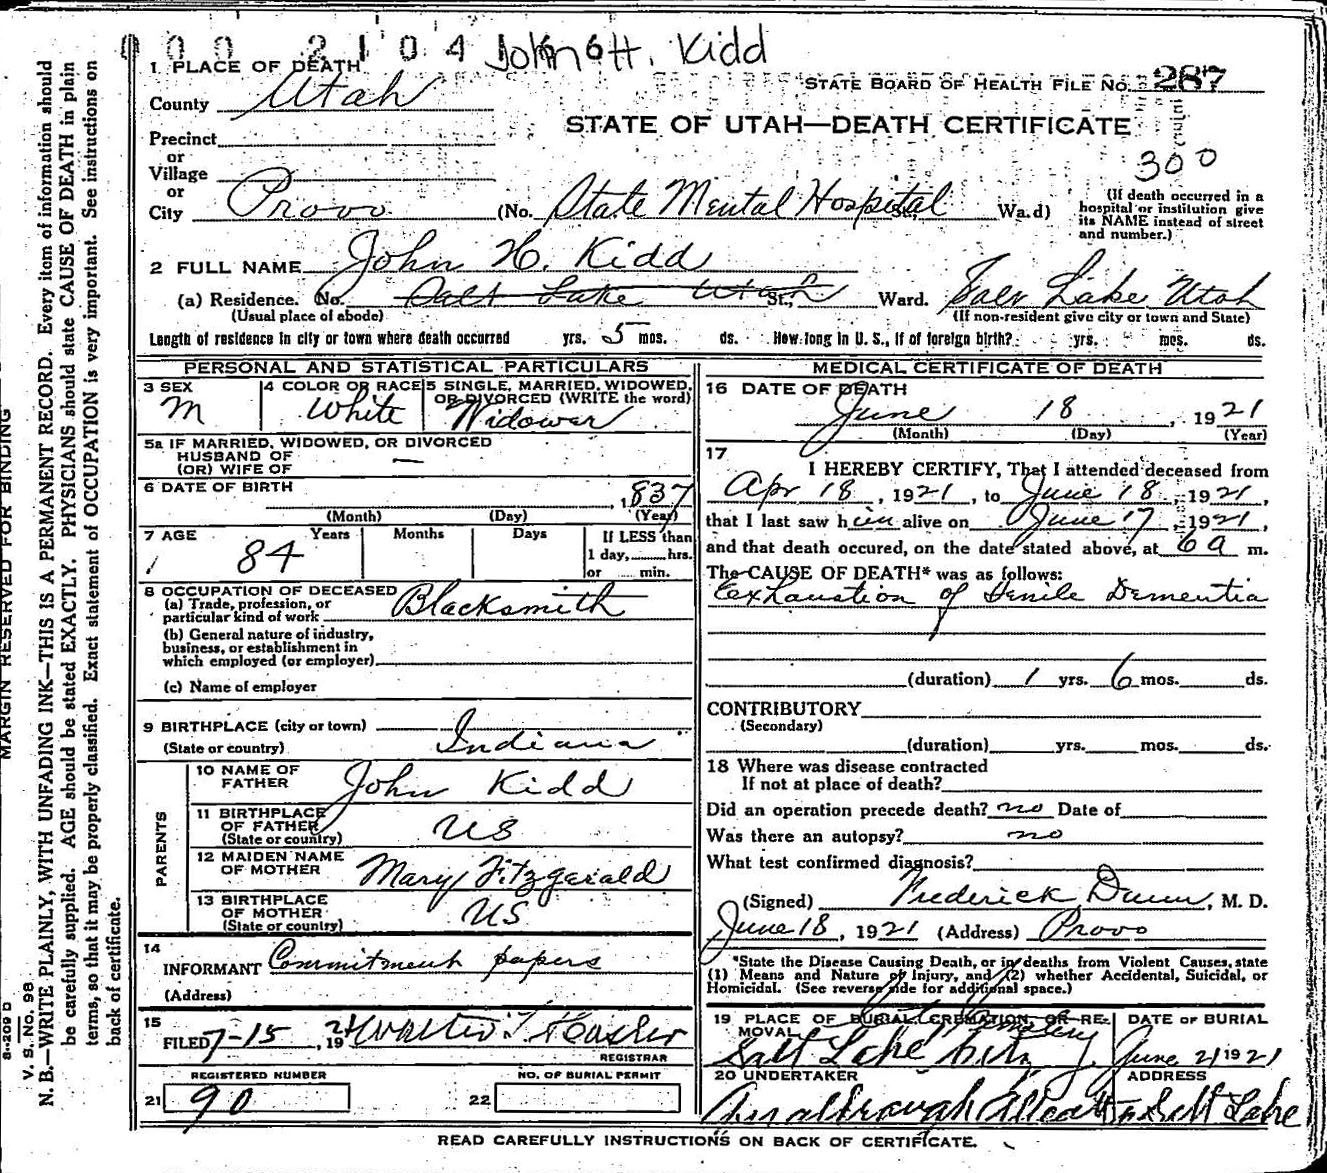 0002104 John H. Kidd
1 PLACE OF DEATH
STATE BOARD OF HEALTH FILE NO. 287
County Utah
STATE OF UTAH—DEATH CERTIFICATE
300
Precinct
or
Village
or
City Provo (No. State Mental Hospital St., Wa.d)
(If death occurred in a
hospital or institution give
its NAME instead of street
and number.)
2 FULL NAME John H. Kidd
(a) Residence. No. Salt Lake Utah St., Ward. Salt Lake Utah
(Usual place of abode) (If non-resident give city or town and State)
Length of residence in city or town where death occurred yrs. 5 mos. ds. How long in U. S., if of foreign birth? yrs. mos. ds.
PERSONAL AND STATISTICAL PARTICULARS
3 SEX 4 COLOR OR RACE 5 SINGLE, MARRIED, WIDOWED,
OR DIVORCED (WRITE the word)
M White Widower
5a IF MARRIED, WIDOWED, OR DIVORCED
HUSBAND OF —
(OR) WIFE OF
6 DATE OF BIRTH , 1837
(Month) (Day) (Year)
7 AGE Years Months Days If LESS than
1 day, hrs.
or min.
84
8 OCCUPATION OF DECEASED
(a) Trade, profession, or
particular kind of work Blacksmith
(b) General nature of industry,
business, or establishment in
which employed (or employer)
(c) Name of employer
9 BIRTHPLACE (city or town)
(State or country) Indiana
PARENTS
10 NAME OF
FATHER John Kidd
11 BIRTHPLACE
OF FATHER
(State or country) US
12 MAIDEN NAME
OF MOTHER Mary Fitzgerald
13 BIRTHPLACE
OF MOTHER
(State or country) US
14
INFORMANT Commitment papers
(Address)
15
FILED 7-15, 1921 Walter T. Hasler
REGISTRAR
REGISTERED NUMBER NO. OF BURIAL PERMIT
21 90 22
MEDICAL CERTIFICATE OF DEATH
16 DATE OF DEATH
June 18, 1921
(Month) (Day) (Year)
17
I HEREBY CERTIFY, That I attended deceased from
Apr 18, 1921, to June 18, 1921,
that I last saw him alive on June 17, 1921,
and that death occured, on the date stated above, at 6 a m.
The CAUSE OF DEATH* was as follows:
Exhaustion of Senile Dementia
(duration) 1 yrs. 6 mos. ds.
CONTRIBUTORY
(Secondary)
(duration) yrs. mos. ds.
18 Where was disease contracted
If not at place of death?
Did an operation precede death? no Date of
Was there an autopsy? no
What test confirmed diagnosis?
(Signed) Frederick Dunn, M. D.
June 18, 1921 (Address) Provo
*State the Disease Causing Death, or in deaths from Violent Causes, state
(1) Means and Nature of Injury, and (2) whether Accidental, Suicidal, or
Homicidal. (See reverse side for additional space.)
19 PLACE OF BURIAL, CREMATION, OR RE-
MOVAL
DATE OF BURIAL
Salt Lake City Cemetery June 21 1921
20 UNDERTAKER ADDRESS
Salt Lake
READ CAREFULLY INSTRUCTIONS ON BACK OF CERTIFICATE.
MARGIN RESERVED FOR BINDING
N. B.—WRITE PLAINLY, WITH UNFADING INK—THIS IS A PERMANENT RECORD. Every item of information should
be carefully supplied. AGE should be stated EXACTLY. PHYSICIANS should state CAUSE OF DEATH in plain
terms, so that it may be properly classified. Exact statement of OCCUPATION is very important. See instructions on
back of certificate.
V. S. No. 98